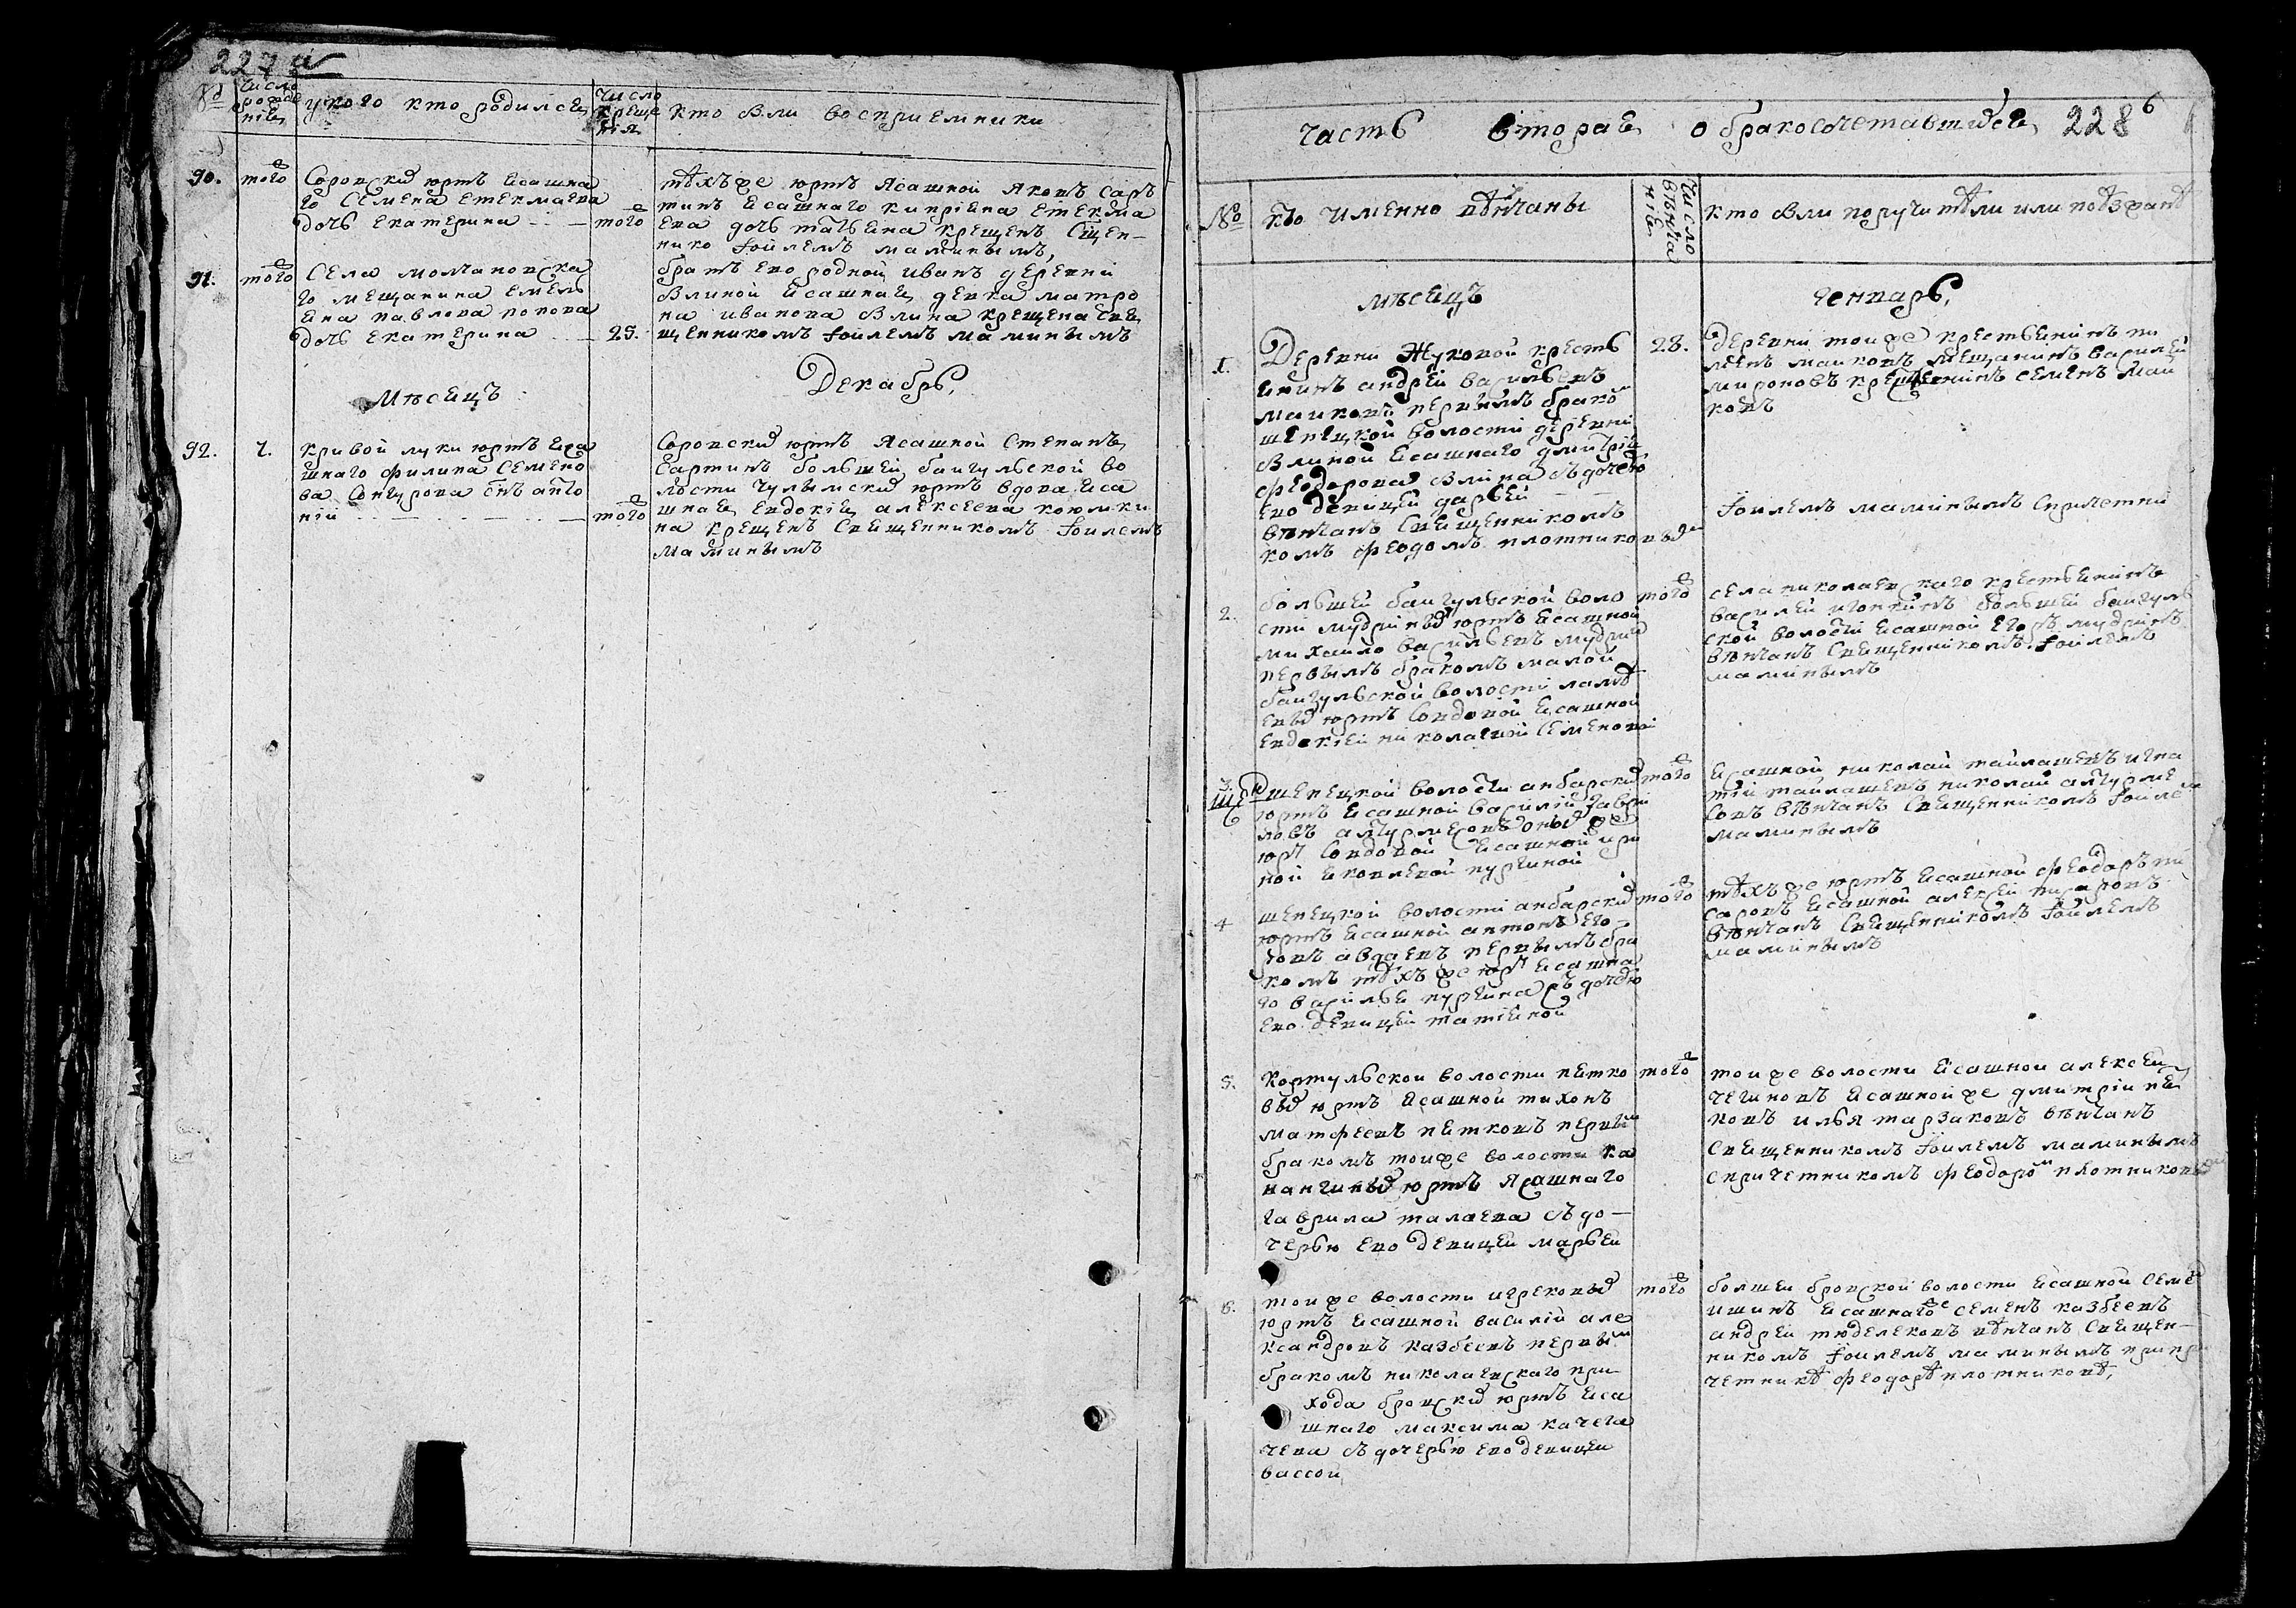 227
№
число
рожде
нія
у кого кто родился
число
креще
нія
кто были воспріемники
90.
того
Соровских юртъ ясашна
го Семена Етекмаева
дочь Екатерина
того
тѣхъ же юртъ Ясашной Яковъ Сарѣ
тинъ ясашнаго Кипріяна Етекма
ева дочь Татьяна крещенъ Сщен-
нико Іоилемъ Маминымъ,
91.
того
Села Молчановска
го мещанина Емель
яна Павлова Попова
дочь Екатерина
25.
братъ ево родной Иванъ деревни
Блиной ясашная девка Матро
на Иванова Блина крещена Свя
щенникомъ Іоилемъ Маминымъ
Мѣсяцъ
Декабрь,
92.
7.
Кривой луки юртъ яса
шнаго Филипа Семено
ва Сонгурова снъ Анто
ній
того
Соровских юртъ Ясашной Степанъ
Сартинъ большей байгульской во
лости чулымских юртъ вдова яса
шная Евдокія Алексеева Коюмки
на крещенъ Священникомъ Іоилемъ
Маминымъ
часть вторая о бракосочетавшихся
228
№
кто именно вѣнчаны
число
вѣнча
нія
кто были поручители или поезжанѣ
мѣсяцъ
генварь,
1.
Деревни Жуковой кресть
янинъ Андрей Васильевъ
Майковъ первымъ брако
шепецкой волости деревни
Блиной ясашнаго Дмитрія
Феодорова Блина съ дочерю
ево девицей Дарьей
вѣнчанъ Священникомъ
комъ Феодомъ Плотниковым
28.
Деревни тоиже крестьянинъ пи
менъ Майковъ мещанинъ Василей
Мироновъ крестьянинъ Семенъ Май
ковъ
Іоилемъ Маминымъ Спричетни
2.
большей байгульской воло
сти Мудриных юртъ ясашной
Михайло Васильевъ Мудрин
первымъ бракомъ малой
байгульской волости
юртъ Совдовой ясашной
Евдокіей Николаевой Семеновой
того
села Николаевскаго крестьянинъ
Василей Игонинъ большей байгуль
ской волости ясашной Егоръ Мудринъ
вѣнчанъ Священникомъ Іоилемъ
Маминымъ
3.
шепецкой волости анбарских
юртъ ясашной Василій Гаври
ловъ Алтурмесовъ оных же
юрт Совдовой ясашной Ири
ной Яковлевой Пургиной
того
ясашной Николай Тайлашевъ Игна
тій Тайлашевъ Николай Алтурме
совъ вѣнчанъ Священникомъ Іоилем
Маминымъ
4
шепецкой волости анбарских
юртъ ясашной Антонъ Его-
ровъ Авдаевъ первымъ бра
комъ тѣхъ же юрт ясашна
го Василья Пургина съ дочерю
ево девицей Татіяной
того
тѣхъ же юртъ ясашной Феодоръ Пи
саровъ ясашной Алексей Писаровъ
вѣнчанъ Священникомъ Іоилемъ
Маминымъ
5.
Коргульской волости Пятко
вых юртъ ясашной Тихонъ
Матфеевъ Пятковъ первым
бракомъ тоиже волости Ка
нангиных юртъ Ясашнаго
Гаврила Талаева съ до-
черью ево девицей Марьей
того
тоиже волости ясашной Алексей
Чегиновъ ясашной же Дмитріи Пя
ковъ Илья Тарзаковъ вѣнчанъ
Священникомъ Іоилемъ Маминымъ
с причетникомъ Феодором Плотниковым
6.
тоиже волости Игрековых
юртъ ясашной Василій Але
ксандровъ Казбеевъ первым
бракомъ Николаевскаго при
хода бровских юртъ яса
шнаго Максима Качега
чева съ дочерью ево девицей
Вассой
того
болшей бровской волости ясашной Семен
ишинъ ясашнаго Семенъ Казбеевъ
Андрей Тюделековъ вѣнчанъ Священ-
никомъ Іоилемъ Маминымъ при при
четникѣ Феодорѣ Плотниковѣ,